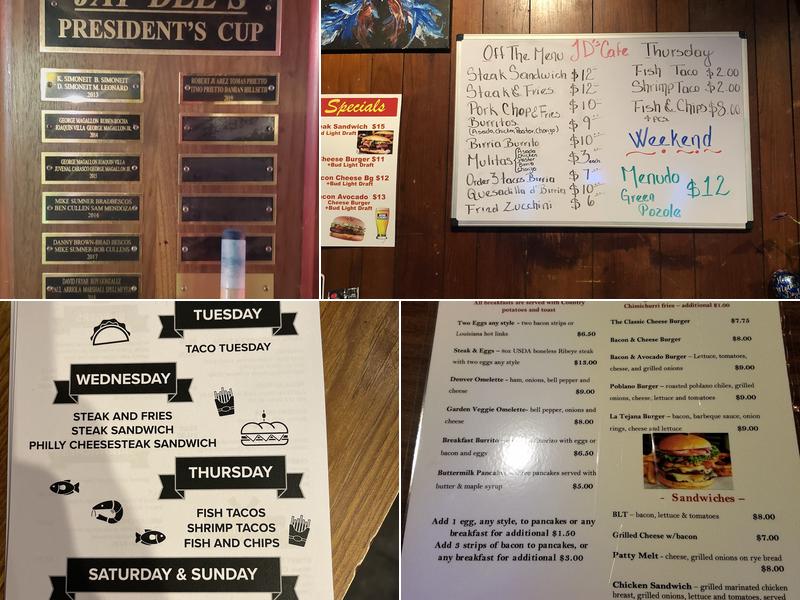 JAY DEE'S
PRESIDENT'S CUP
K. SIMONEIT B. SIMONEIT
D. SIMONEIT M. LEONARD
2013
GEORGE MAGALLON RUBEN ROCHA
JOAQUIN VILLA GEORGE MAGALLON JR.
2014
GEORGE MAGALLON JOAQUIN VILLA
JUVENAL CARASCO GEORGE MAGALLON JR
2015
MIKE SUMNER BRAD BESCOS
BEN CULLEN SAM MENDOZA
2016
DANNY BROWN-BRAD BESCOS
MIKE SUMNER-BOB CULLENS
2017
DAVID FRYAR RUDY GONZALEZ
ARRIOLA MARSHALL SPELLMEYER
ROBERT JUAREZ TOMAS PRIETTO
TINO PRIETTO DAMIAN HILLSETH
2019
Specials
eak Sandwich $15
ud Light Draft
Cheese Burger $11
+Bud Light Draft
con Cheese Bg $12
+Bud Light Draft
con Avocado $13
Cheese Burger
+Bud Light Draft
Off The Menu JD's Cafe Thursday
Steak Sandwich $12
Steak & Fries $12
Pork Chop & Fries $10
Burritos $9
(Asada, Chicken, Pastor, Chorizo)
Birria Burrito $10
Mulitas $3 each
Asada
Chicken
Pastor
Birria
Chorizo
Order 3 tacos Birria $7
Quesadilla d' Birria $10
Fried Zucchini $6
Fish Taco $2.00
Shrimp Taco $2.00
Fish & Chips $8.00
4 PCS
Weekend
Menudo $12
Green
Pozole
TUESDAY
TACO TUESDAY
WEDNESDAY
STEAK AND FRIES
STEAK SANDWICH
PHILLY CHEESESTEAK SANDWICH
THURSDAY
FISH TACOS
SHRIMP TACOS
FISH AND CHIPS
SATURDAY & SUNDAY
All breakfasts are served with Country
potatoes and toast
Two Eggs any style - two bacon strips or
Louisiana hot links $6.50
Steak & Eggs - 8oz USDA boneless Ribeye steak
with two eggs any style $13.00
Denver Omelette - ham, onions, bell pepper and
cheese $9.00
Garden Veggie Omelette- bell pepper, onions and
cheese $8.00
Breakfast Burrito - burrito with eggs or
bacon and eggs $6.50
Buttermilk Pancakes - three pancakes served with
butter & maple syrup $5.00
Add 1 egg, any style, to pancakes or any
breakfast for additional $1.50
Add 3 strips of bacon to pancakes, or
any breakfast for additional $3.00
Chimichurri fries - additional $1.00
The Classic Cheese Burger $7.75
Bacon & Cheese Burger $8.00
Bacon & Avocado Burger - Lettuce, tomatoes,
cheese, and grilled onions $9.00
Poblano Burger - roasted poblano chiles, grilled
onions, cheese, lettuce and tomatoes $9.00
La Tejana Burger - bacon, barbeque sauce, onion
rings, cheese and lettuce $9.00
- Sandwiches -
BLT - bacon, lettuce & tomatoes $8.00
Grilled Cheese w/bacon $7.00
Patty Melt - cheese, grilled onions on rye bread
$8.00
Chicken Sandwich - grilled marinated chicken
breast, grilled onions, lettuce and tomatoes, served